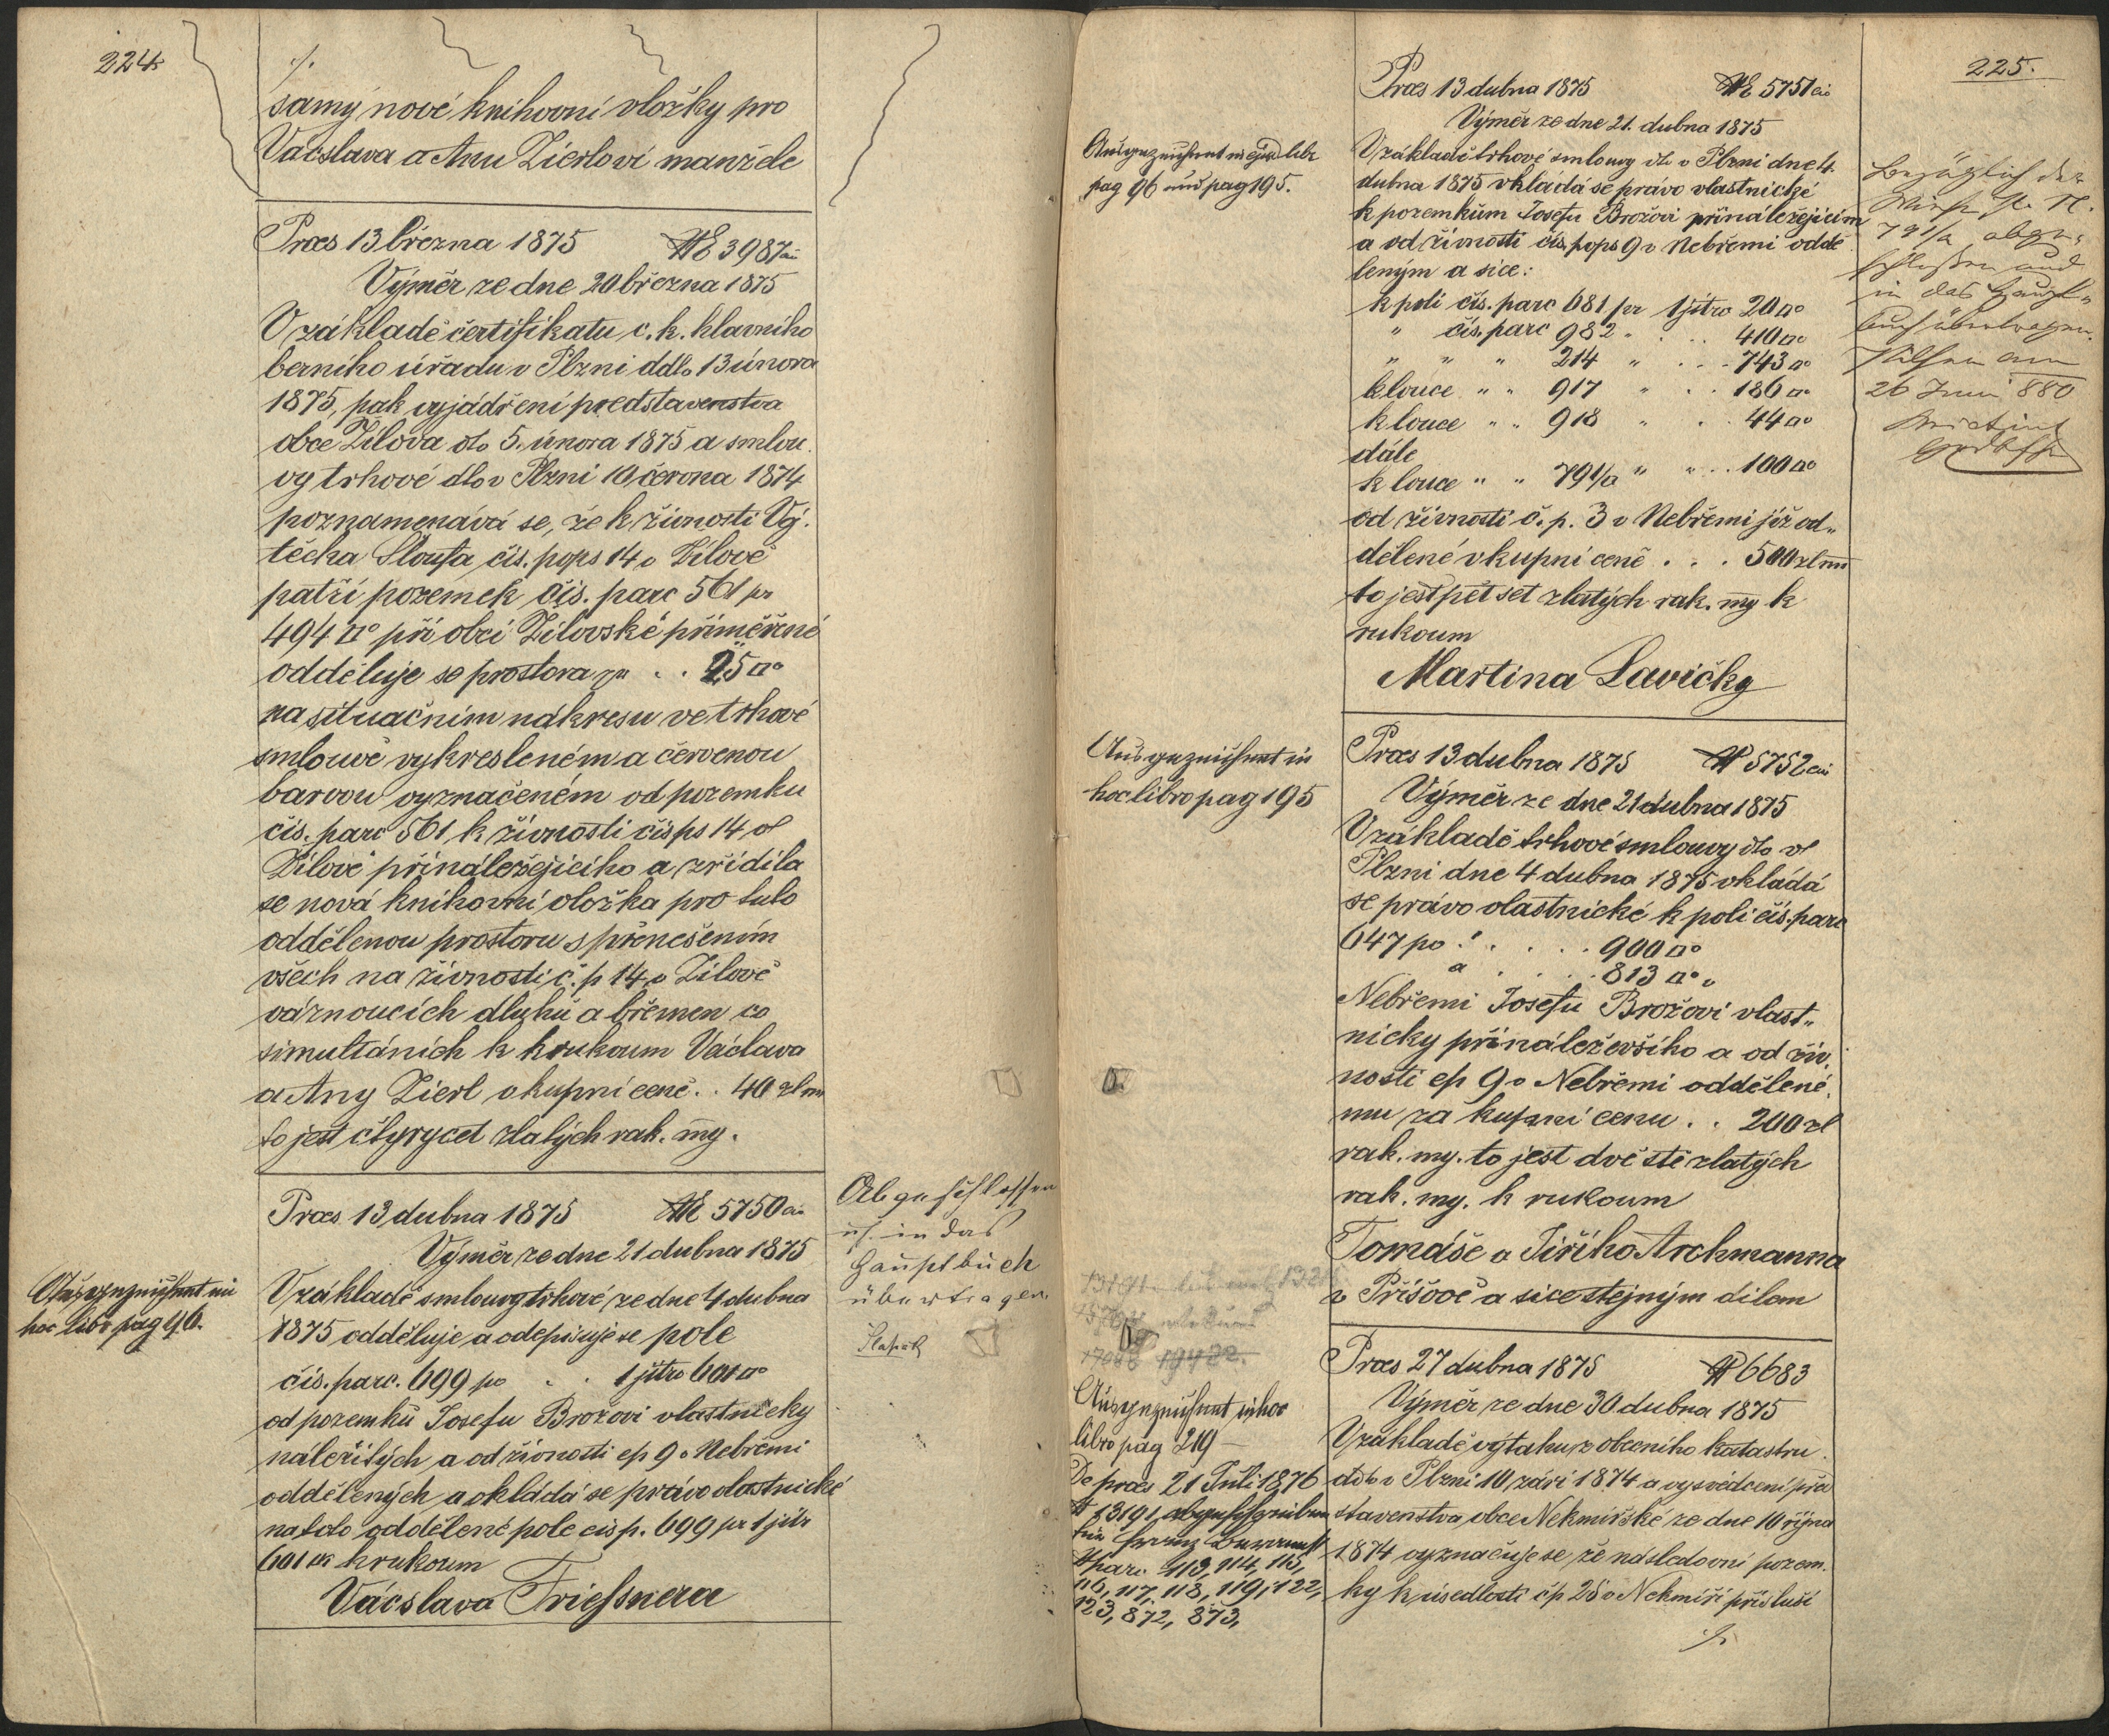 224
./.
samý nové knihovní vložky pro
Vácslava a Anu Zierlovi manžele
Præs 13 března 1875 NE 3987
Výměr ze dne 20 března 1875
V základě čertifikatu c. k. hlavniho
berniho úřadu v Plzni ddto 13 února
1875, pak vyjádření predstavenstva
obce Žilova dto 5. února 1875 a smlou
vy trhové dto v Plzni 10 června 1874
poznamenává se, že k živnosti Voj.
těcha Sloufa čis. pops 14 v Žilově
patří pozemek čis. parc 561 pr
494 □° při obci Žilovské přiměřené
odděluje se prostora pr . . 25 □°
na situačnim nákresu ve trhové
smlouvě vykresleném a červenou
barvou vyznačeném od pozemku
čis. parc 561 k živnosti čis ps 14 v
Žilově přináležejiciho a zřidila
se nová knihovni vložka pro tuto
oddělenou prostoru s přenešením
všech na živnosti č. p 14 v Žilově
váznoucích dluhů a břemen co
simultánich k hrukoum Václava
a Any Zierl v kupní ceně . . 40 zl
to jest čtyrycet zlatých rak. my.
Præs 13 dubna 1875 NE 5750
Výměr ze dne 21 dubna 1875
Ausgezeichnet in
hoc libro pag 96.
V základě smlouvy trhové ze dne 4 dubna
1875 odděluje a odepisuje se pole
čis. parc. 699 po . . 1 jitro 601 □°
od pozemků Josefu Brožovi vlastnicky
náležitých a od živnosti čp 9 v Nebřemi
oddělených a vkládá se právo vlastnické
na toto oddělené pole čis p. 699 pr 1 jitr
601 □° k rukoum
Vácslava Friessnera
Abgeschlossen
u. in das
Hauptbuch
übertragen.
225.
Præs 13 dubna 1875 NE 5751
Výměr ze dne 21. dubna 1875
Ausgezeichnet in libr
pag 96 und pag 195.
V základě trhové smlouvy dto v Plzni dne 4.
dubna 1875 vkládá se právo vlastnické
k pozemkům Josefu Brožovi přináležejicím
a od živnosti čis. pops 9 v Nebřemi oddě
leným a sice:
k poli čis. parc 681 pr 1 jitro 20 □°
" čis. parc 982 " . . 410 □°
" " " 214 " . . . 743 □°
k louce " " 917 " . . 186 □°
k louce " " 918 " . . 44 □°
dále
k louce " " 791/a " " . . 100 □°
od živnosti č. p. 3 v Nebřemi již od„
dělené v kupní ceně . . . 500 zl
to jest pět set zlatých rak. my k
rukoum
Martina Lavičky
Bezüglich der
791/a abge„
schlossen und
in das Haupt„
buch übertragen.
Pilsen am
26 Juni 880
Præs 13 dubna 1875 N 5752
Výměr ze dne 21 dubna 1875
Ausgezeichnet in
hoc libro pag 195
V základě trhové smlouvy dto v
Plzni dne 4 dubna 1875 vkládá
se právo vlastnické k poli čis. parc
647 po . . . . . 900 □°
a . . . . . 813 □° v
Nebřemi Josefu Brožovi vlast„
nicky přináleževšiho a od živ.
nosti čp 9 v Nebřemi oddělené.
mu za kupní cenu . . 200 zl
rak. my. to jest dvě stě zlatých
rak. my. k rukoum
Tomáše a Jiřího Archmanna
v Přišově a sice stejným dilem
Præs 27 dubna 1875 N 6683
Výměr ze dne 30 dubna 1875
19422.
Ausgezeichnet in hoc
libro pag 219 —
De præs 21 Juli 1876
N 13191 abgeschrieben
für Franz
Nparc. 113, 114, 115,
116, 117, 118, 119, 122,
123, 872, 873,
V základě výtahu z obecního katastru
ddto v Plzni 10 září 1874 a vysvědcení před
stavenstva obce Nekmiřské ze dne 10 října
1874 vyznačuje se že následovní pozem.
ky k usedlosti čp 25 v Nekmíři přísluší
./.